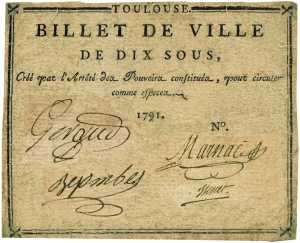 TOULOUSE.
BILLET DE VILLE
DE DIX SOUS,
Créé par l'Arrêté des Pouvoirs constitués, pour circuler
comme espèces.
1791. No.